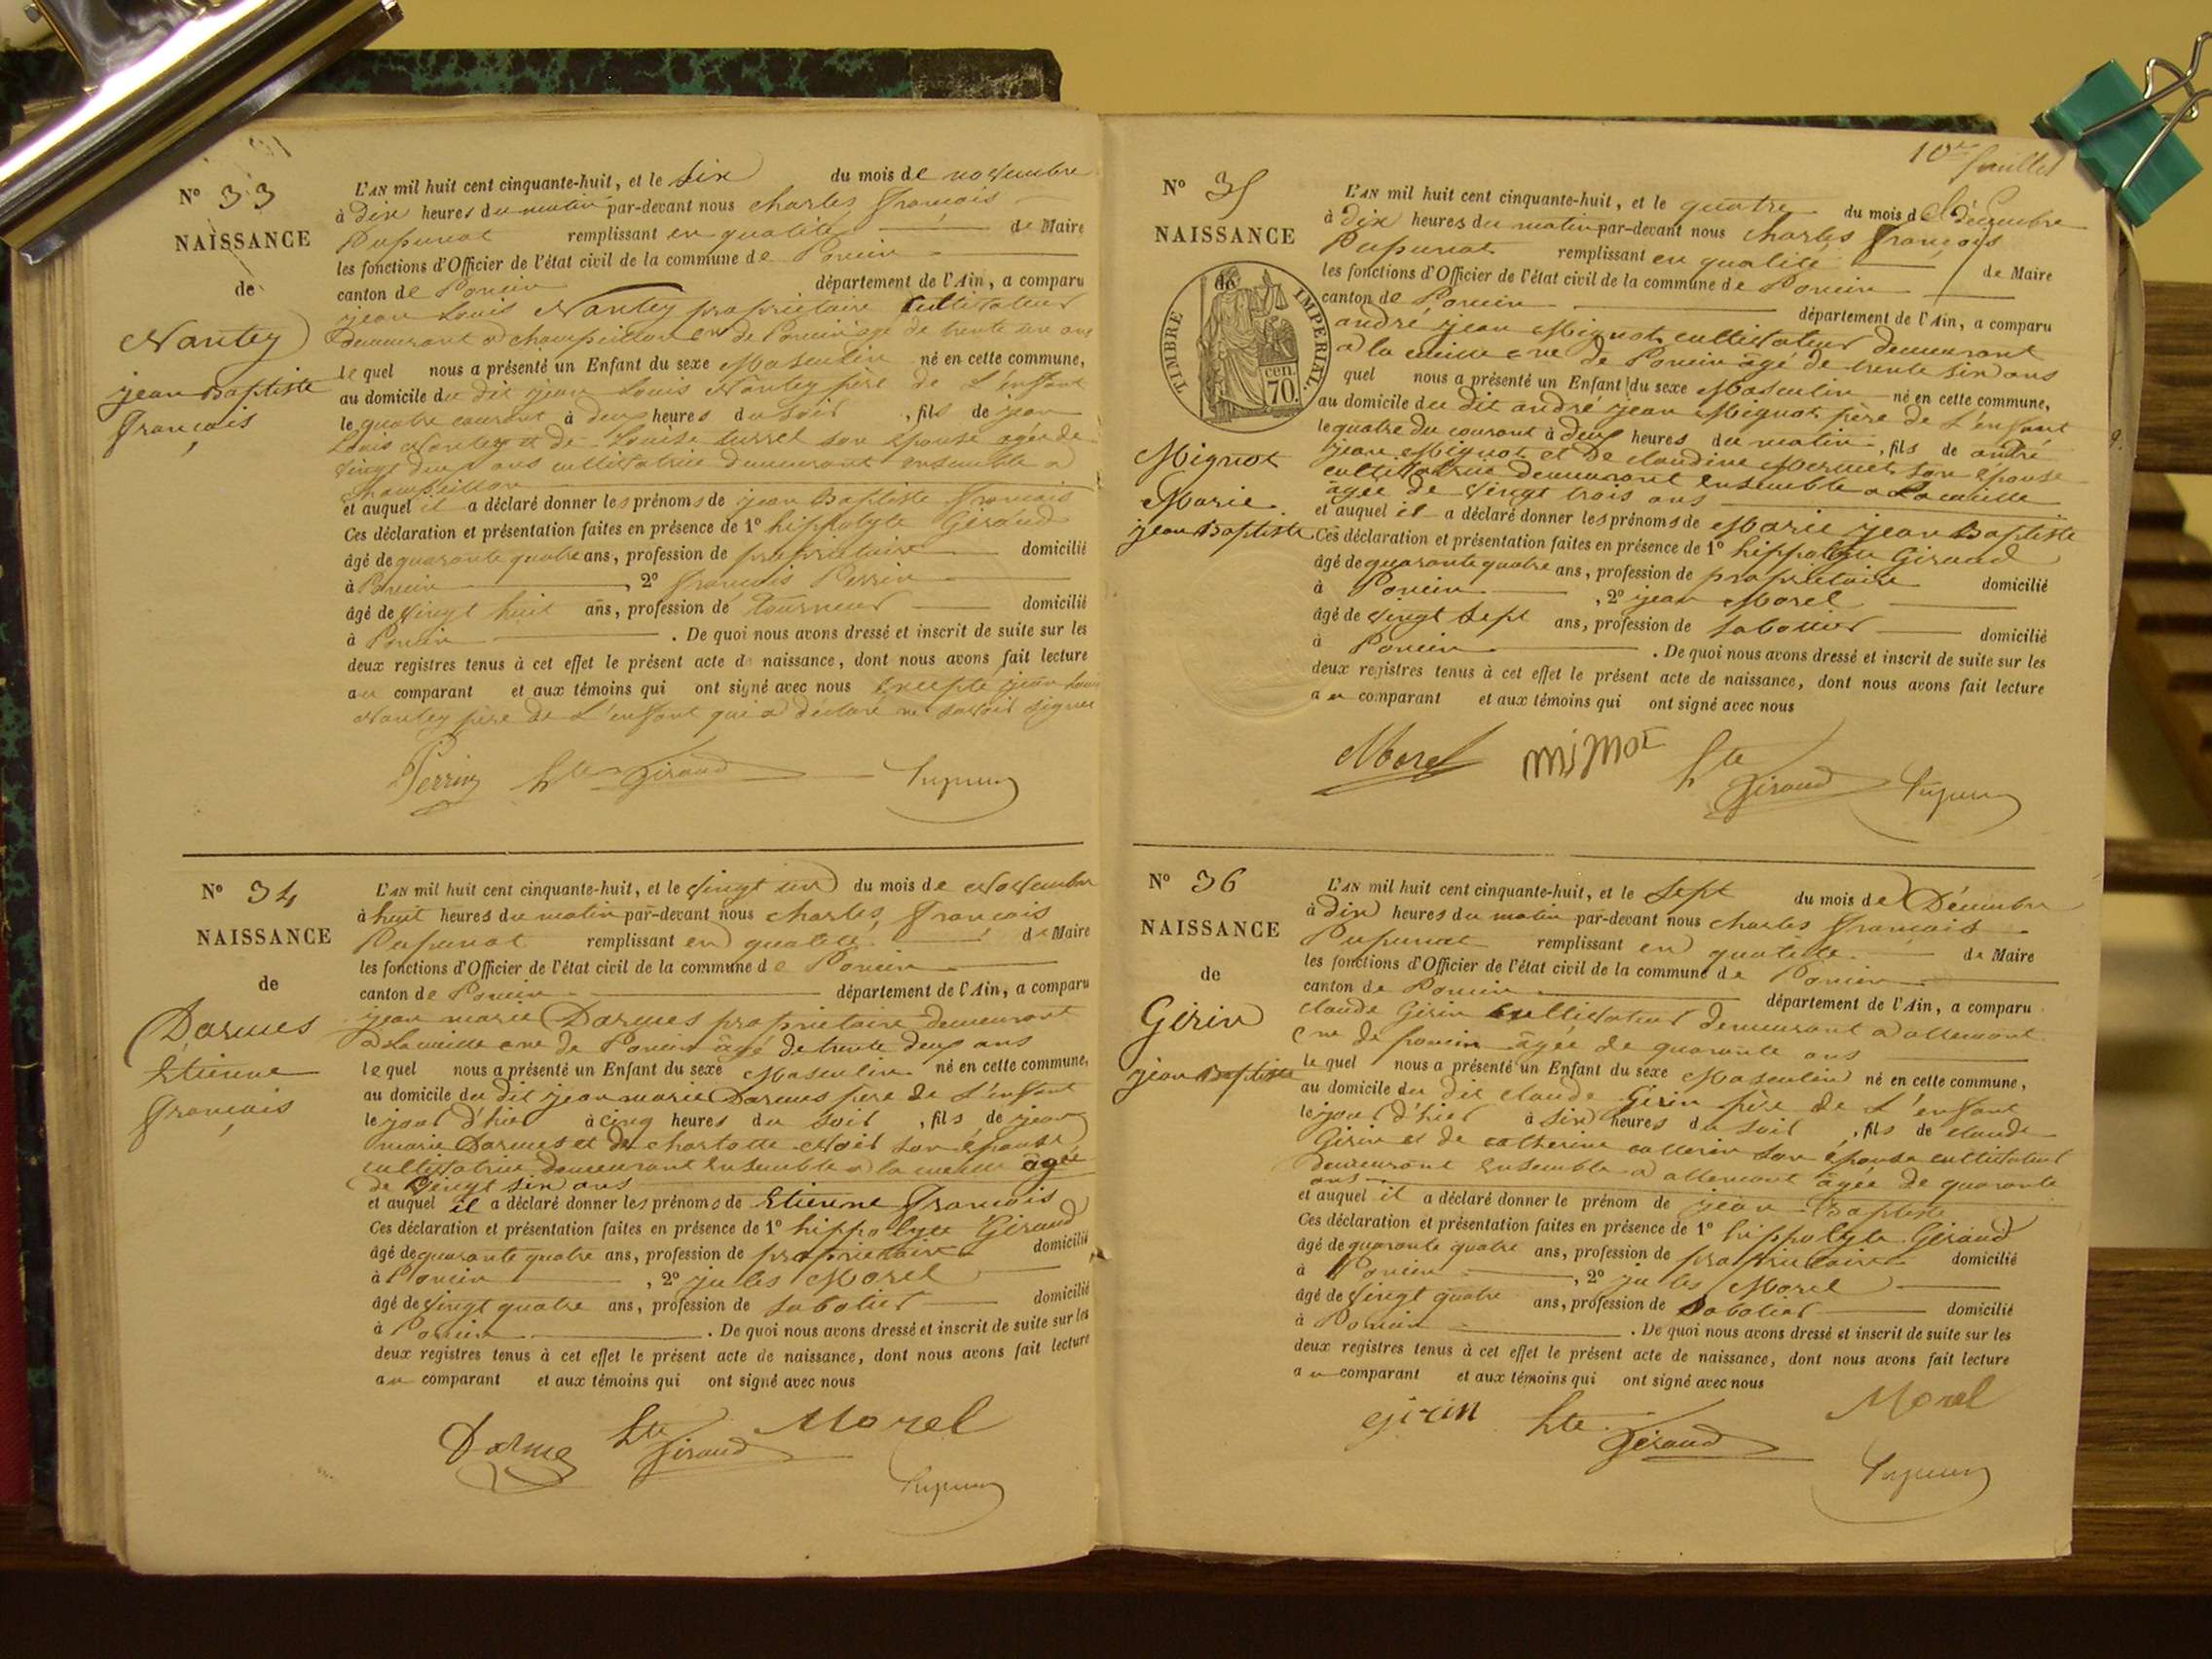 N° 33
NAISSANCE
de
Nantey
jean Baptiste
François
L'AN mil huit cent cinquante-huit, et le Six du mois de novembre
à Dix heures du matin par-devant nous charles François
Pupunat remplissant en qualité de Maire
les fonctions d'Officier de l'état civil de la commune de Poncin
canton de Poncin département de l'Ain, a comparu
jean Louis Nantey propriétaire cultivateur
demeurant a champeillon cne de Poncin agé de trente un ans
le quel nous a présenté un Enfant du sexe Masculin né en cette commune,
au domicile du dit jean Louis Nantey père de L'enfant
le quatre courant à deux heures du soir, fils de jean
Louis Nantey et de Louise turrel son épouse agée de
vingt deux ans cultivatrice demeurant ensemble a
Champeillon
et auquel il a déclaré donner les prénoms de jean Baptiste François
Ces déclaration et présentation faites en présence de 1° hippolyte Giraud
âgé de quarante quatre ans, profession de propriétaire domicilié
à Poncin, 2° françois Perrin
âgé de vingt huit ans, profession de Tourneur domicilié
à Poncin. De quoi nous avons dressé et inscrit de suite sur les
deux registres tenus à cet effet le présent acte de naissance, dont nous avons fait lecture
au comparant et aux témoins qui ont signé avec nous Excepté jean Louis
Nantey père de L'enfant qui a déclaré ne savoir signer
Perrin hte Giraud
N° 34
NAISSANCE
de
Darmes
Etienne
François
L'AN mil huit cent cinquante-huit, et le vingt un du mois de Novembre
à huit heures du matin par-devant nous charles François
Pupunat remplissant en qualité de Maire
les fonctions d'Officier de l'état civil de la commune de Poncin
canton de Poncin département de l'Ain, a comparu
jean marie Darmes propriétaire demeurant
a Lacueille cne de Poncin âgé de trente deux ans
le quel nous a présenté un Enfant du sexe Masculin né en cette commune,
au domicile du dit jean marie Darmes pere de L'enfant
le jour d'hier à cinq heures du soir, fils de jean
marie Darmes et de charlotte Noir son épouse
cultivatrice demeurant ensemble a la cueille âgée
de vingt six ans
et auquel il a déclaré donner les prénoms de Etienne François
Ces déclaration et présentation faites en présence de 1° hippolyte Giraud
âgé de quarante quatre ans, profession de propriétaire domicilié
à Poncin, 2° jules Morel
âgé de vingt quatre ans, profession de sabotier domicilié
à Poncin. De quoi nous avons dressé et inscrit de suite sur les
deux registres tenus à cet effet le présent acte de naissance, dont nous avons fait lecture
au comparant et aux témoins qui ont signé avec nous
Darmes hte Giraud Morel
10e feuillet
N° 35
NAISSANCE
de
TIMBRE IMPERIAL
70 cen.
Mignot
Marie
jean Baptiste
L'AN mil huit cent cinquante-huit, et le quatre du mois de décembre
à dix heures du matin par-devant nous charles François
Pupunat remplissant en qualité de Maire
les fonctions d'Officier de l'état civil de la commune de Poncin
canton de Poncin département de l'Ain, a comparu
andré jean Mignot cultivateur demeurant
a la cueille cne de Poncin âgé de trente six ans
quel nous a présenté un Enfant du sexe Masculin né en cette commune,
au domicile du dit andré jean Mignot père de L'enfant
le quatre du courant à deux heures du matin, fils de andré
jean Mignot et De claudine Mermet son épouse
cultivatrice demeurant ensemble a La cueille
âgée de vingt trois ans
et auquel il a déclaré donner les prénoms de Marie jean Baptiste
Ces déclaration et présentation faites en présence de 1° hippolyte Giraud
âgé de quarante quatre ans, profession de propriétaire domicilié
à Poncin, 2° jean Morel
âgé de vingt sept ans, profession de sabotier domicilié
à Poncin. De quoi nous avons dressé et inscrit de suite sur les
deux registres tenus à cet effet le présent acte de naissance, dont nous avons fait lecture
au comparant et aux témoins qui ont signé avec nous
Morel hte Giraud
N° 36
NAISSANCE
de
Girin
jean Baptiste
L'AN mil huit cent cinquante-huit, et le Sept du mois de Décembre
à dix heures du matin par-devant nous charles François
Pupunat remplissant en qualité de Maire
les fonctions d'Officier de l'état civil de la commune de Poncin
canton de Poncin département de l'Ain, a comparu
claude Girin cultivateur demeurant a allement
cne de poncin âgée de quarante ans
le quel nous a présenté un Enfant du sexe Masculin né en cette commune,
au domicile du dit claude Girin père de L'enfant
le jour d'hier à six heures du soir, fils de claude
Girin et de catherine son épouse
demeurant ensemble a allement âgée de quarante
ans
et auquel il a déclaré donner le prénom de jean Baptiste
Ces déclaration et présentation faites en présence de 1° hippolyte Giraud
âgé de quarante quatre ans, profession de propriétaire domicilié
à Poncin, 2° jules Morel
âgé de vingt quatre ans, profession de sabotier domicilié
à Poncin. De quoi nous avons dressé et inscrit de suite sur les
deux registres tenus à cet effet le présent acte de naissance, dont nous avons fait lecture
au comparant et aux témoins qui ont signé avec nous
girin hte Giraud Morel